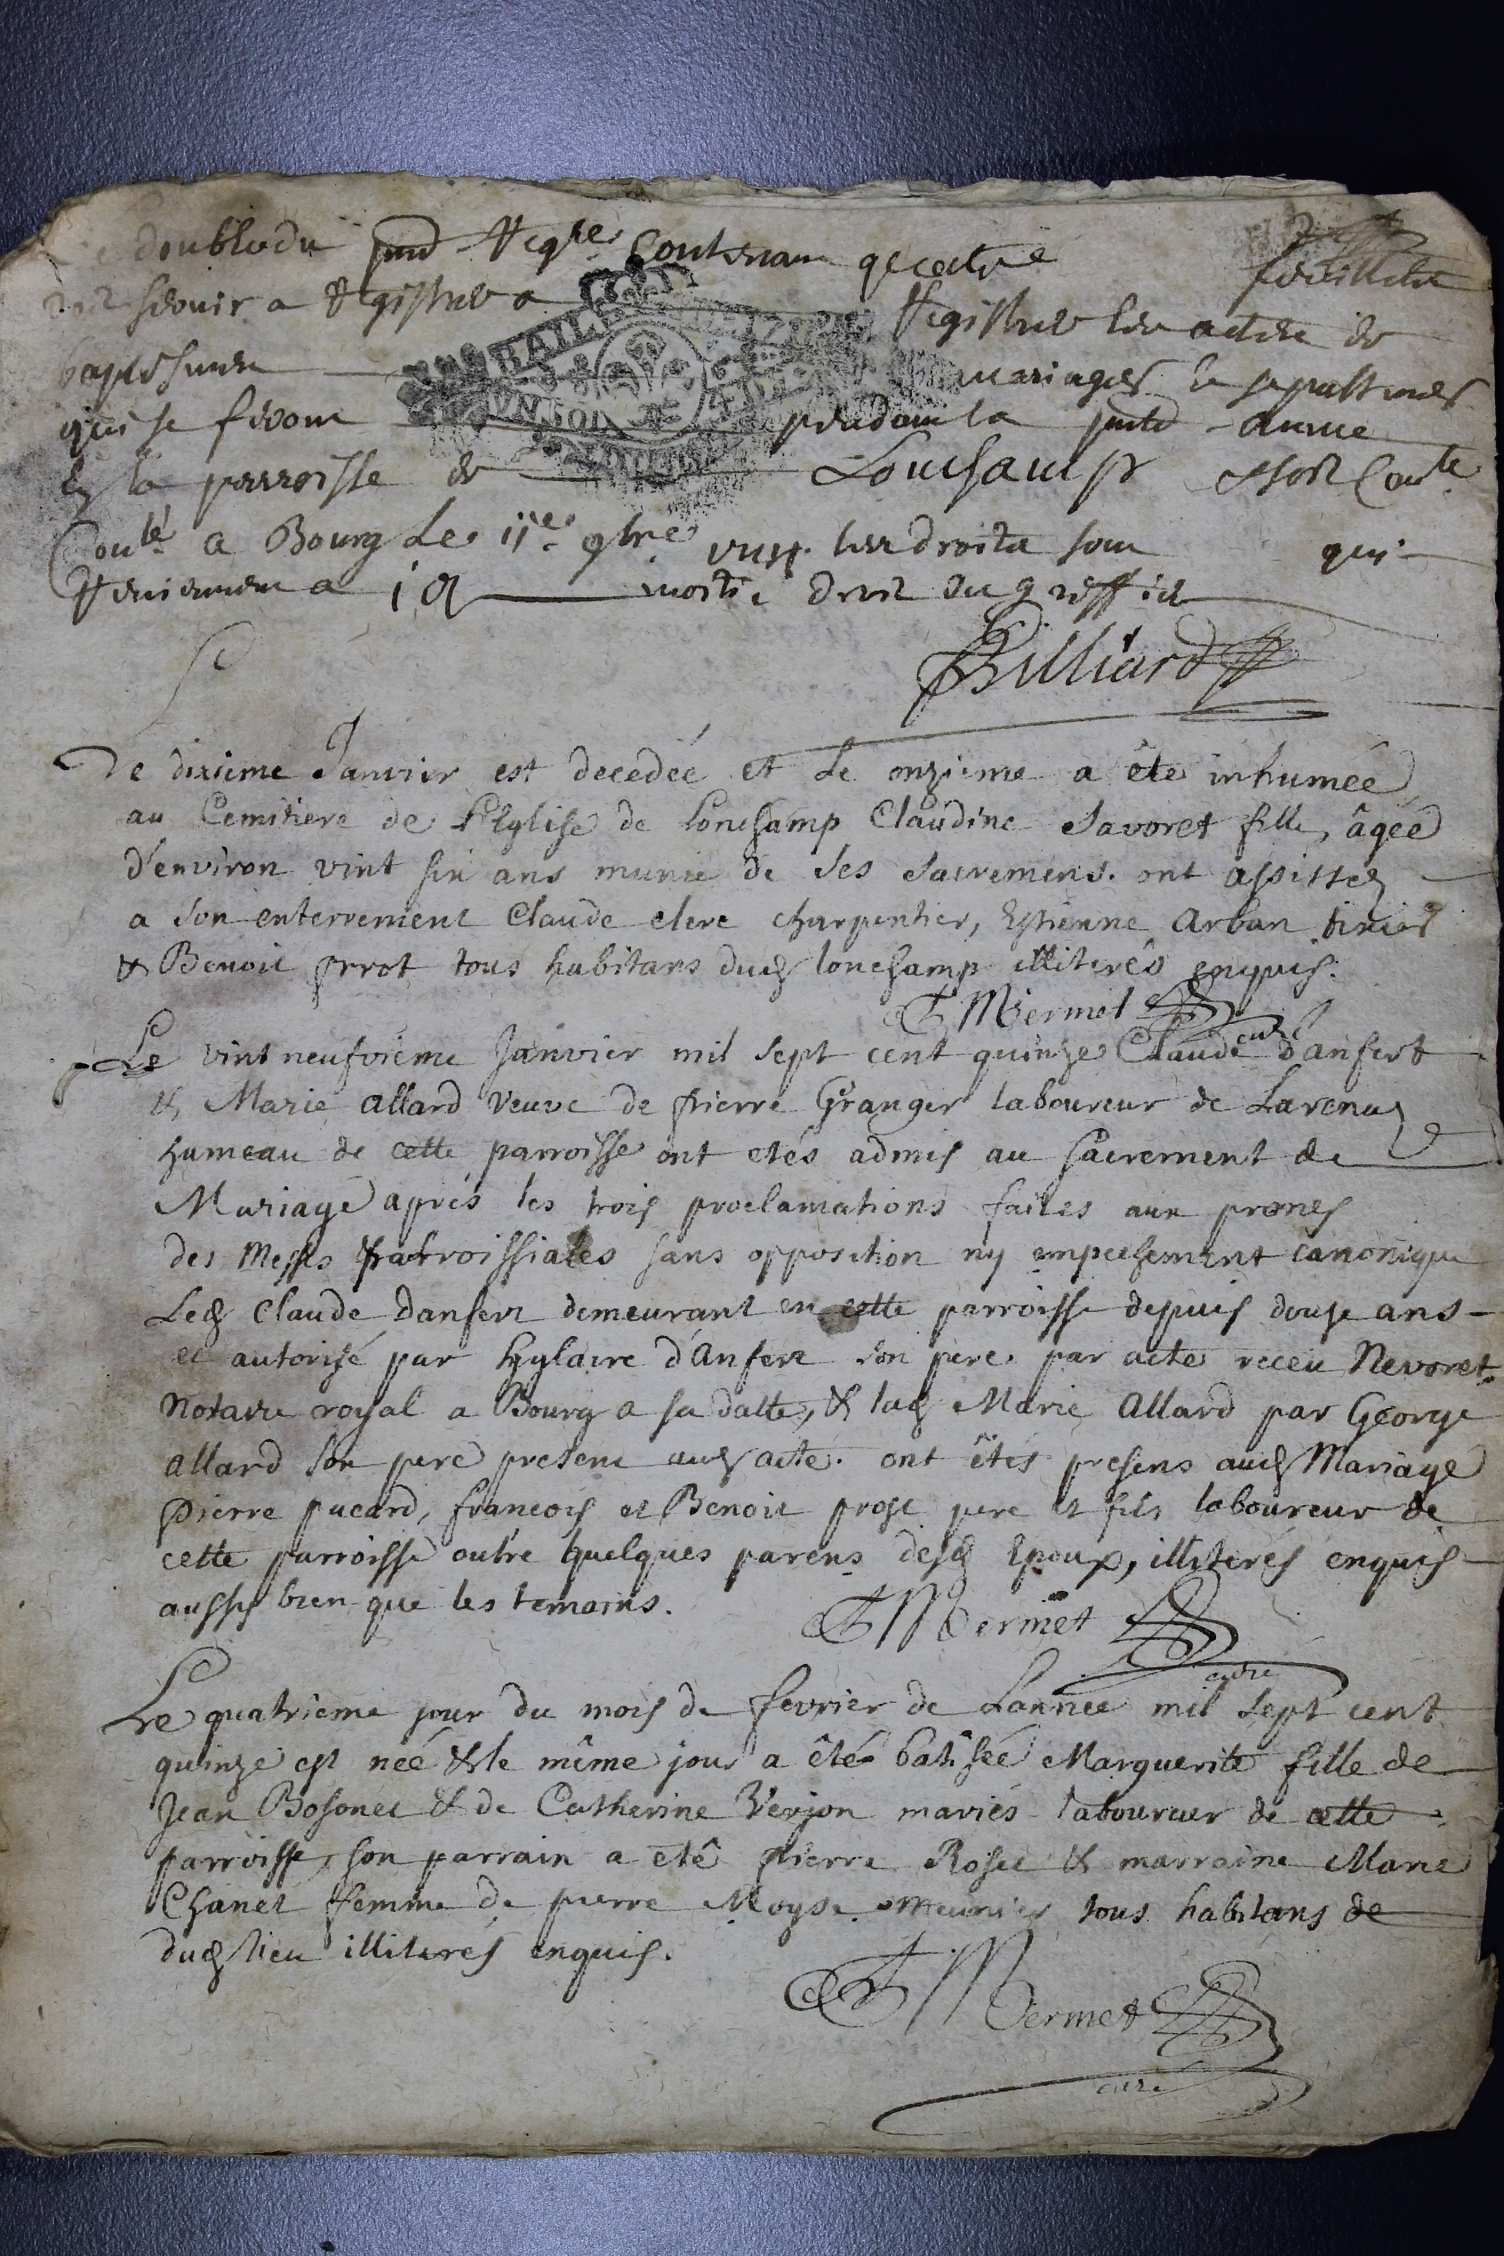 double du pnt Regre Contenan quatre feuillets
doit servir a Registre a Registrer les actes de
baptesmes mariages & sepultures
qui se feront pendam la pnte annee
En la parroisse de Lonchamp
Conté a Bourg Le 11e 9bre les droits sont qui
Reviennent a moitié droit du greffier
Billiard
Le dixieme Janvier est decedée et Le onzieme a êté inhumée
au Cemitiere de L'Eglise de Lonchamp Claudine Savoret fille, âgée
d'environ vint six ans munie de ses Sacremens. ont assistez
a son enterrement Claude clerc charpentier, Estienne Arban
& Benoit prrot tous habitans dud lonchamp illiterés enquis.
Mermet curé
Le vint neufvieme Janvier mil sept cent quinze Claude d'anfert
& Marie allard veuve de pierre Granger laboureur de Larena
hameau de cette parroisse ont etés admis au sacrement de
Mariage aprés les trois proclamations faites aux prones
des Messes parroissiales sans opposition ny empechement canonique
Led Claude Danfert demeurant en cette parroisse depuis douze ans
et autorisé par hylaire d'anfert son pere par acte receu Nevoret
Notaire royal a Bourg a sa datte, & lad Marie allard par George
allard son pere present aud acte. ont êtés presens aud Mariage
pierre pucard, francois et Benoit prost pere et fils laboureur de
cette parroisse outre quelques parens desd Epoux, illiterés enquis
aussy bien que les temoins.
Mermet
curé
Le quatrieme jour du mois de fevrier de Lannée mil sept cent
quinze est née & le même jour a êté batisée Marguerite fille de
Jean Bosonet & de Catherine Verjon mariés laboureur de cette
parroisse, son parrain a eté pierre Roset & marraine Marie
Chanel femme de pierre Moyse meunier tous habitans de
dud lieu illiterés enquis.
Mermet
curé